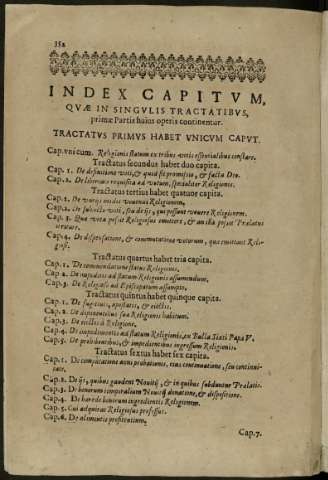 352
INDEX CAPITVM,
QVÆ IN SINGVLIS TRACTATIBVS,
primæ Partis huius operis continentur.
TRACTATVS PRIMVS HABET VNICVM CAPVT.
Cap. vnicum. Religionis statum ex tribus votis essentialibus constare.
Tractatus secundus habet duo capita.
Cap. 1. De definitione voti, & quid sit promissio, & facta Deo.
Cap. 2. De libertate requisita ad votum, specialiter Religionis.
Tractatus tertius habet quatuor capita.
Cap. 1. De varijs modis vouendi Religionem.
Cap. 2. De subiecto voti, seu de ijs, qui possunt vouere Religionem.
Cap. 3. Quæ vota possit Religiosus emittere, & an illa possit Prælatus
irritare.
Cap. 4. De dispensatione, & commutatione votorum, quæ emittunt Reli-
giosi.
Tractatus quartus habet tria capita.
Cap. 1. De commendatione status Religionis.
Cap. 2. De ineundis ad statum Religionis assumendum.
Cap. 3. De Religioso ad Episcopatum assumpto.
Tractatus quintus habet quinque capita.
Cap. 1. De fugitiuis, apostatis, & eiectis.
Cap. 2. De deponentibus sua Religionis habitum.
Cap. 3. De eiectis à Religione.
Cap. 4. De impedimentis ad statum Religionis, ex Bulla Sixti Papæ V.
Cap. 5. De prohibentibus, & impedientibus ingressum Religionis.
Tractatus sextus habet sex capita.
Cap. 1. De computatione anni probationis, eius continuatione, seu continui-
tate.
Cap. 2. De ijs, quibus gaudent Nouitij, & in quibus subduntur Prælatis.
Cap. 3. De bonorum temporalium Nouitij donatione, & dispositione.
Cap. 4. De hærede bonorum ingredientis Religionem.
Cap. 5. Cui adquirat Religiosus professus.
Cap. 6. De alimentis professorum.
Cap. 7.